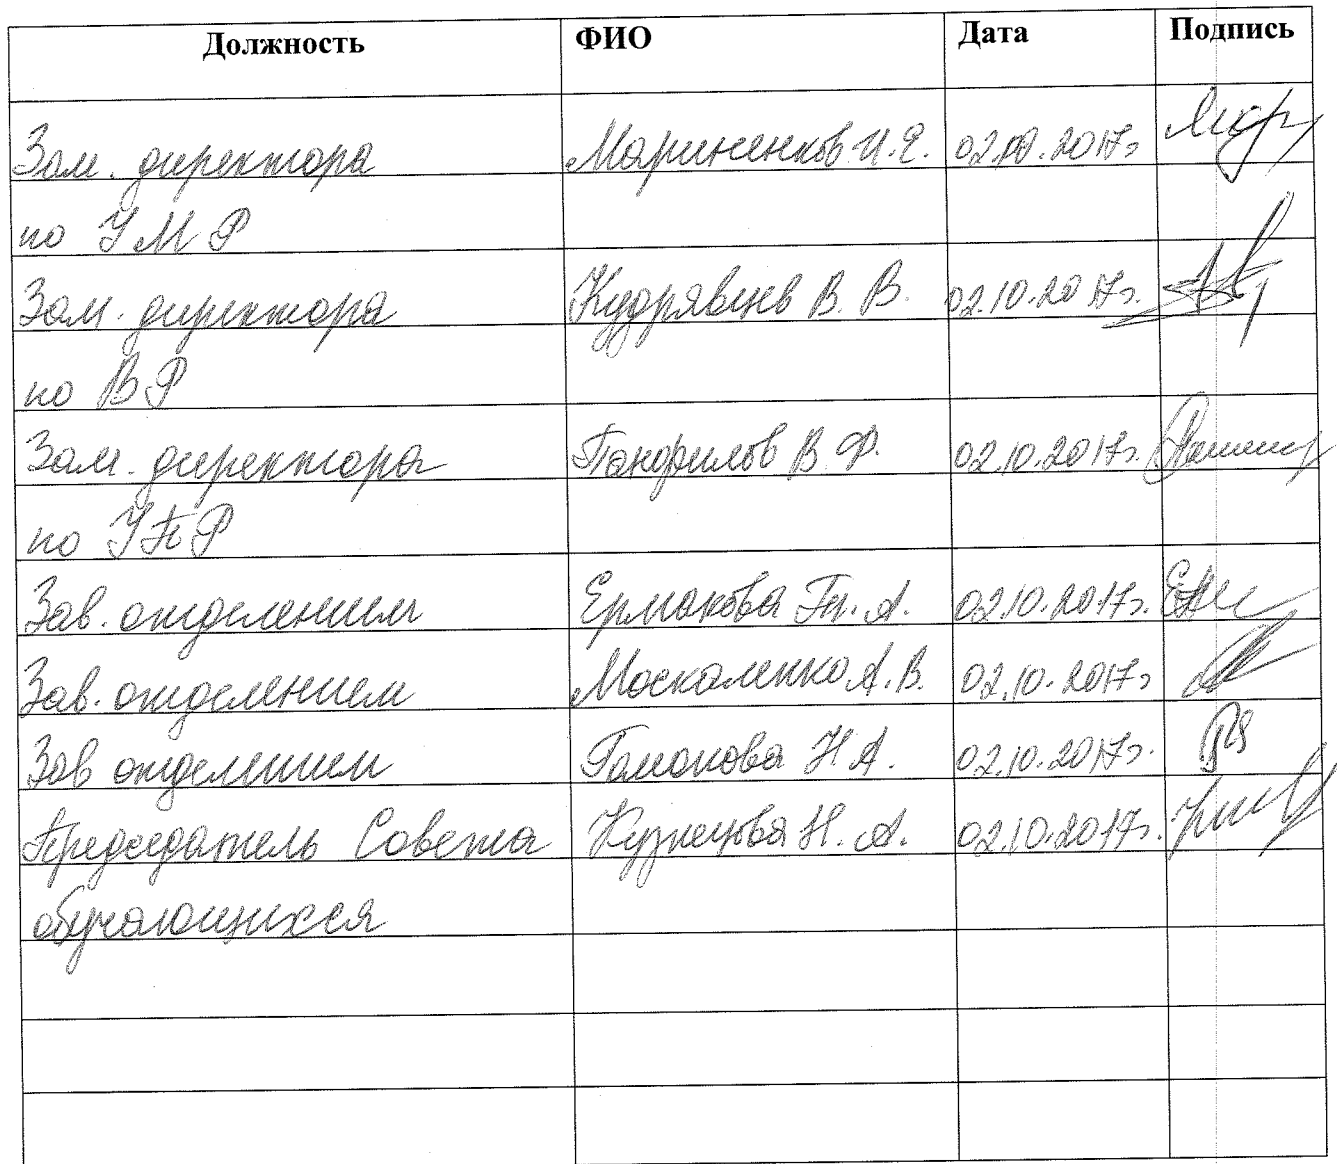 Должность ФИО Дата Подпись
Зам. директора Мариненков И.Е. 02.10.2017г
по УМР
Зам. директора Кудрявцев В. В. 02.10.2017г.
по ВР
Зам. директора Панфилов В. Ф. 02.10.2017г.
по УПР
Зав. отделением Ермакова Т. А. 02.10.2017г.
Зав. отделением Москаленко А.В. 02.10.2017г
Зав отделением Гамонова Н А. 02.10.2017г.
Председатель Совета Кузнецова Н. А. 02.10.2017г.
обучающихся